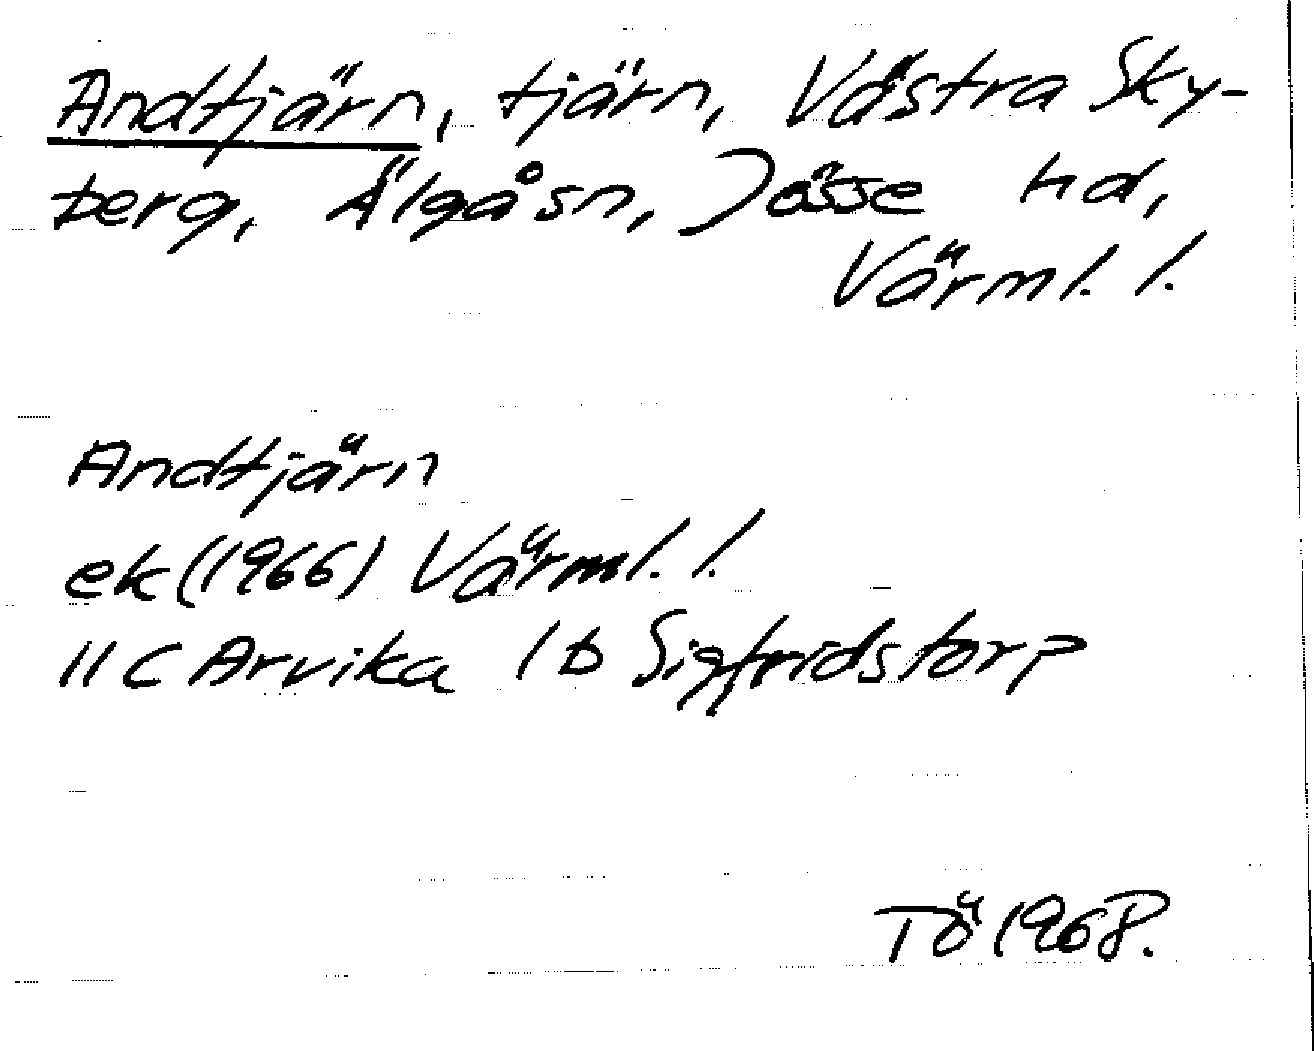 Andtjärn, tjärn, Västra Sky-
berg, Älgå sn, Jösse hd,
Värml. l.
Andtjärn
ek (1966) Värml. l.
11 C Arvika 1 b Sigfridstorp
Tö 1968.